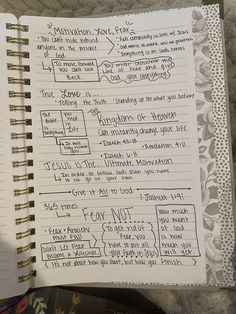 1c
Motivation, Love, Fear
• You can't hide behind
anyone in the presence
of God
• Fall completely in love w/ Jesus
• God wants to work w/ us together
• Everything is on God's terms
To move forward
You can't look
Back
You must crossover the
Line of fear and give
God your everything
True Love is...
• Telling the Truth • Standing up for what you believe
The Bible
is
Everything
You need
in Life
The
Kingdom of Heaven
Can militantly change your life
• Isaiah 61:3
• Isaiah 6:8
• Revelation 4:11
Jesus is The Ultimate Motivation
• In order to follow God's plan you have
to let go of your own
Give it All to God
365 times
Joshua 1:9
Fear NOT
• Fear + Anxiety
must Fall
Don't Let Fear
Become a Lifestyle
To get rid of
Fear, you
have to put all
your Faith in Jesus
How much
you want
of God
is how
much you
will get
It's not about how you start, but how you Finish